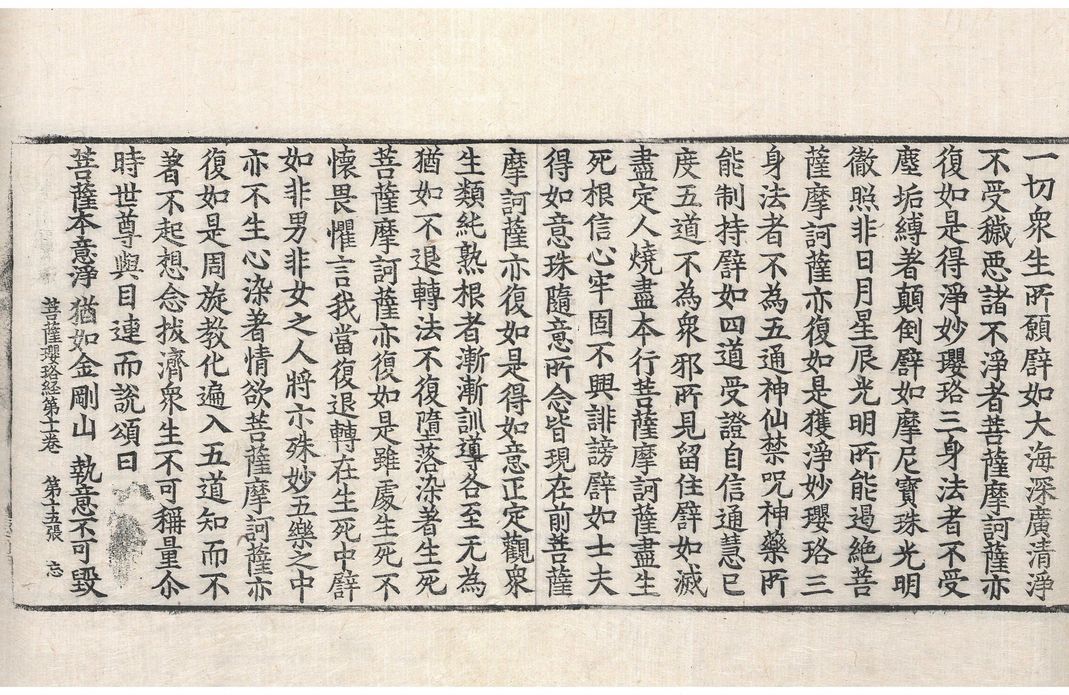 一切衆生所願譬如大海深廣清淨
不受穢惡諸不淨者菩薩摩訶薩亦
復如是得淨妙瓔珞三身法者不受
塵垢縛著顛倒譬如摩尼寶珠光明
徹照非日月星辰光明所能遏絶菩
薩摩訶薩亦復如是獲淨妙瓔珞三
身法者不為五通神仙禁呪神藥所
能制持譬如四道受證自信通慧已
度五道不為衆邪所見留住譬如滅
盡定人燒盡本行菩薩摩訶薩盡生
死根信心牢固不興誹謗譬如士夫
得如意珠隨意所念皆現在前菩薩
摩訶薩亦復如是得如意正定觀衆
生類純熟根者漸漸訓導各至无為
猶如不退轉法不復墮落染著生死
菩薩摩訶薩亦復如是雖處生死不
懷畏懼言我當復退轉在生死中譬
如非男非女之人將示殊妙五樂之中
亦不生心染著情欲菩薩摩訶薩亦
復如是周旋教化遍入五道知而不
著不起想念拔濟衆生不可稱量尒
時世尊與目連而說頌曰
菩薩本意淨 猶如金剛山 執意不可毀
菩薩瓔珞経第十卷 第十五張 忘